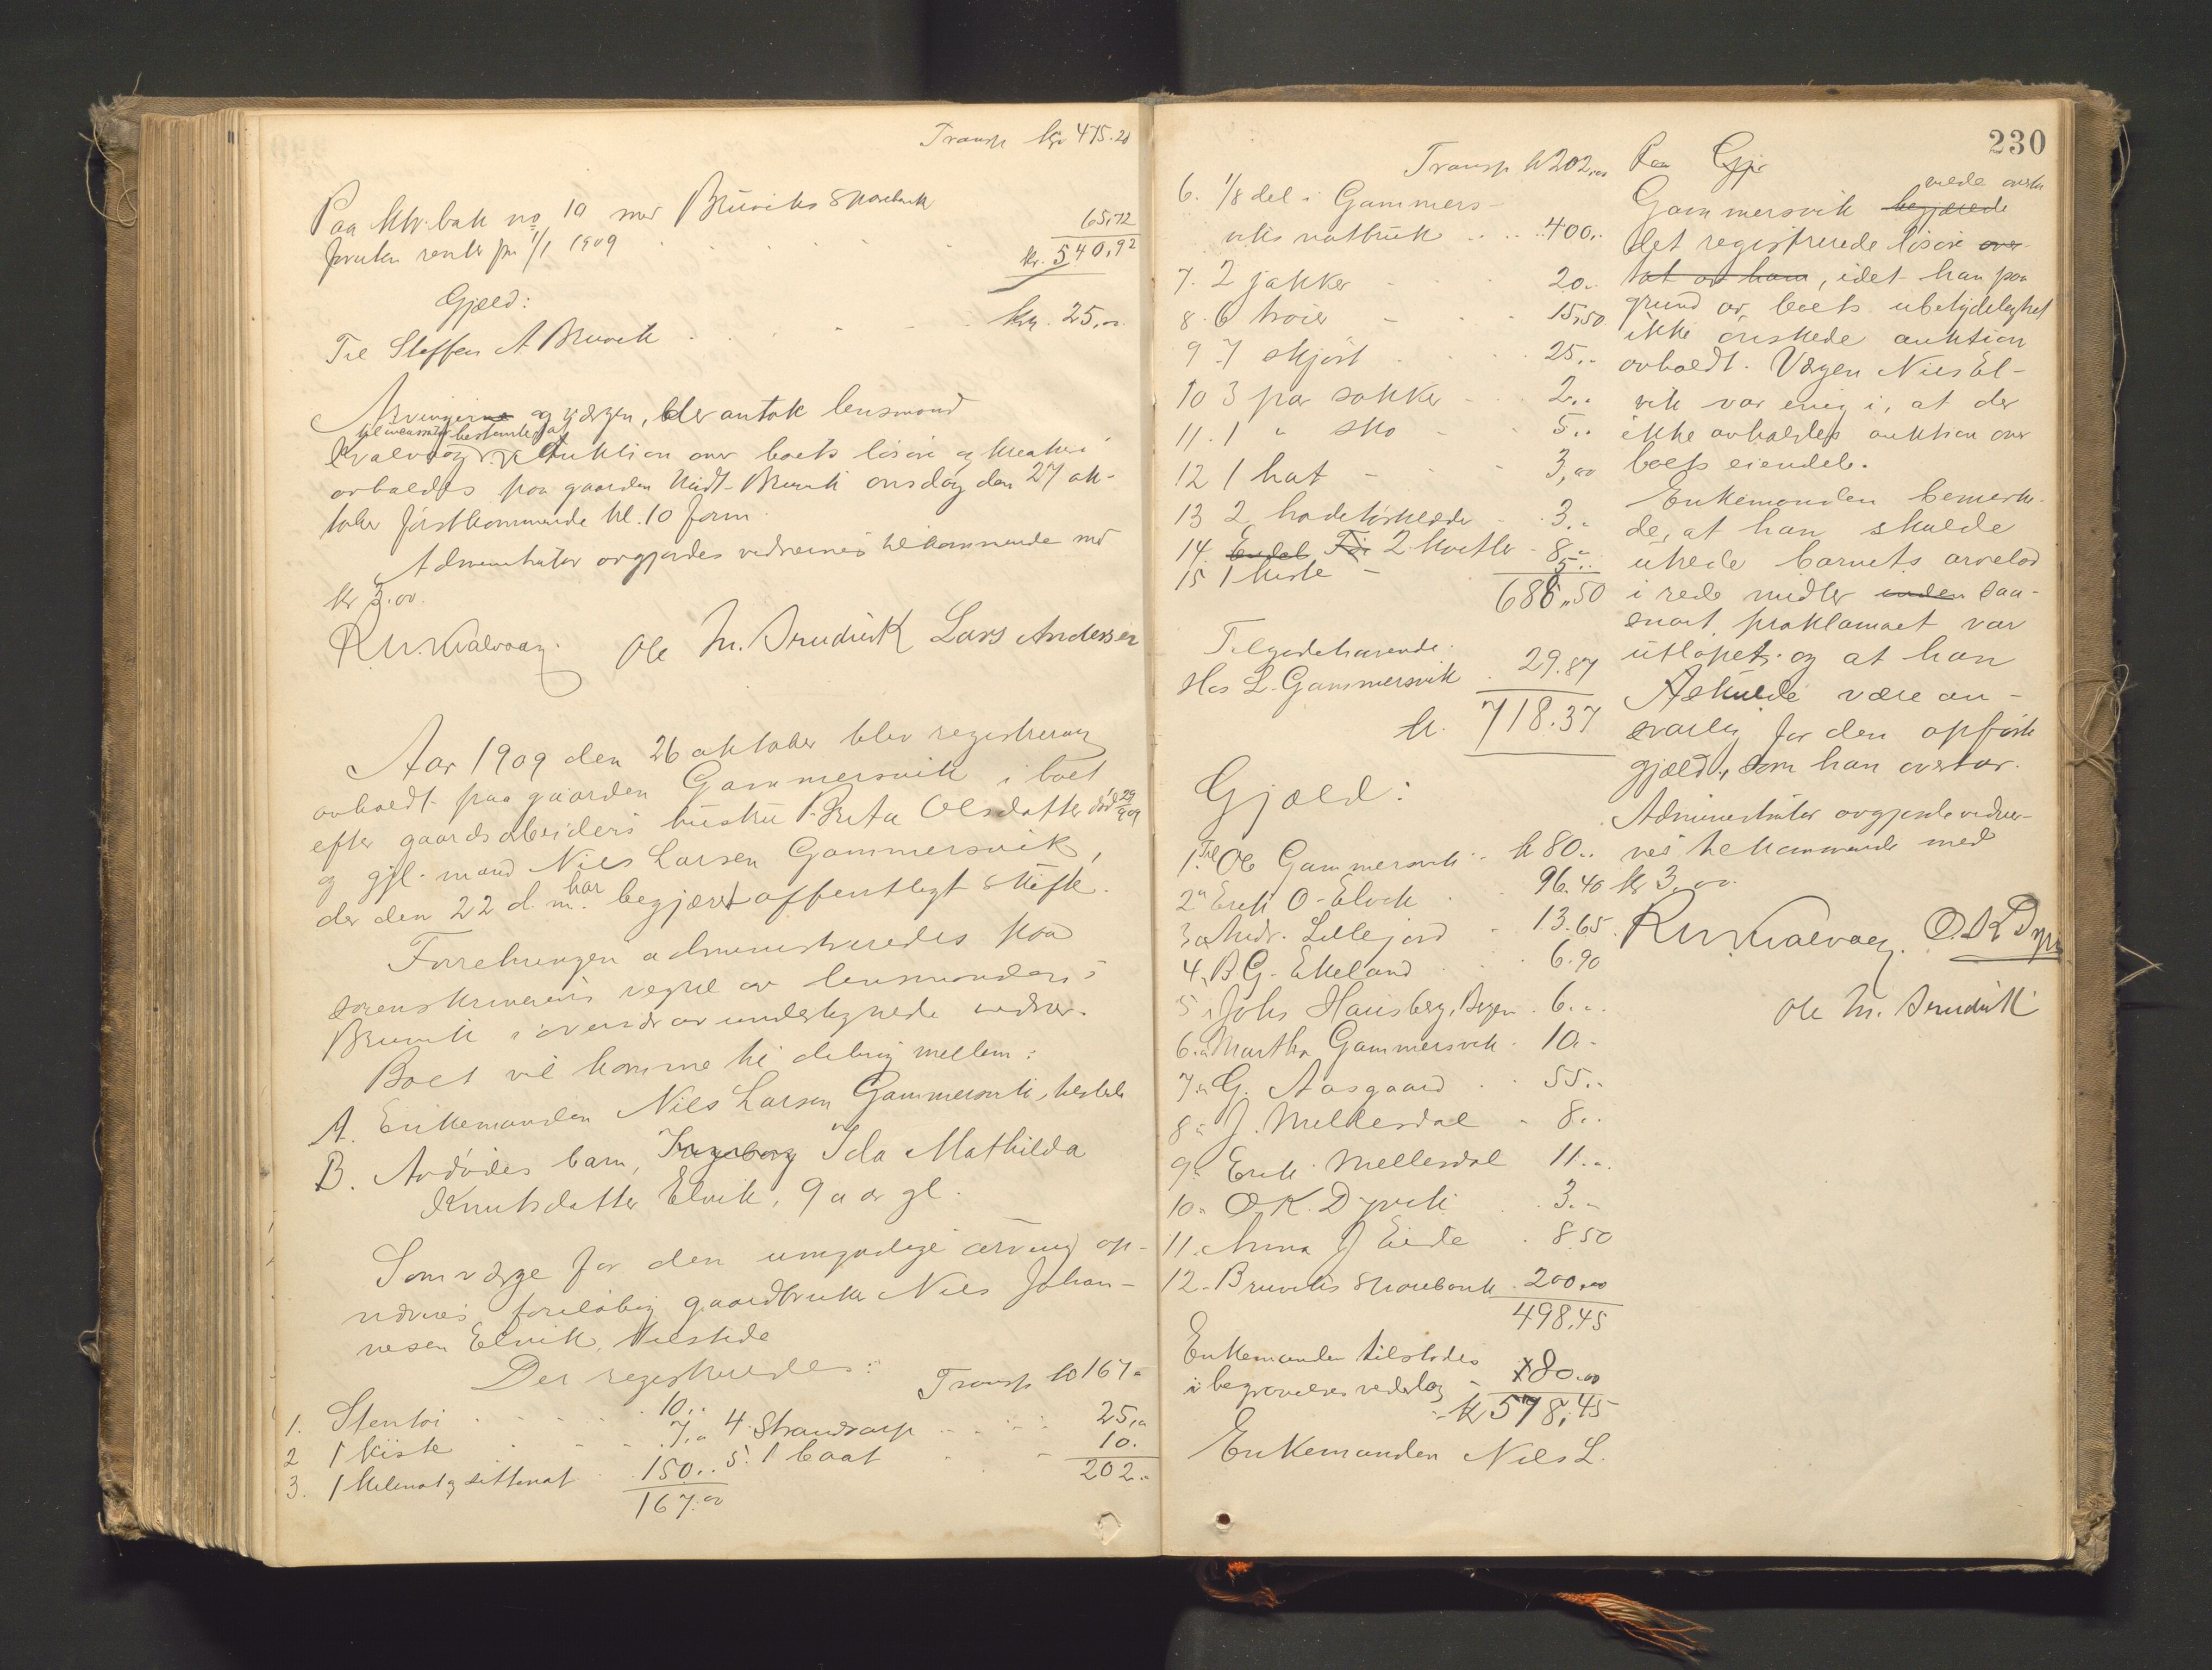 Transp kr 475.20
Paa ktr. bok no 10 med Bruviks Sparebank
foruten renter fra 1/1 1909 . . . . . 65,72
kr. 540,92
Gjæld:
Til Steffen A Bruvik . . . . kr. 25,00
Arvingerne og værgen, der antok lensmand
Kvalvaag til incassator bestemte at Auktion over boets løsøre og kreaturer
avholdes paa gaarden Midt-Bruvik onsdag den 27 ok-
tober førstkommende kl. 10 form.
Administrator avgjordes vidnernes tilkommende med
kr 3.00.
R. M. Kvalvaag. Ole M. Bruvik Lars Andersen
Aar 1909 den 26 oktober blev registrering
avholdt paa gaarden Gammersvik i boet
efter gaardsarbeiders hustru Brita Olsdatter død 29/9 09
og gjl. mand Nils Larsen Gammersvik,
der den 22 d. m. har begjært offentligt skifte.
Forretningen administreredes paa
sorenskriverens vegne av lensmanden i
Bruvik i overvær av undertegnede vidner.
Boet vil komme til deling mellem:
A. Enkemanden Nils Larsen Gammersvik, tilstede
B. Avdødes barn, Ingeborg Ida Mathilda
Knutsdatter Elvik, 9 aar gl.
Som værge for den umyndige arving op-
nævnes foreløbig gaardbruker Nils Johan-
nesen Elvik, tilstede
Der registreredes:
Transp kr 167 "
1. Stentøi . . . . 10 "
2 1 kiste . . . . 7 "
3. 1 kilenot og sittenot . . 150 "
167.00
4. Strandvarp . . . 25,00
5. 1 baat . . . 10.
202 "
230
Transp kr 202,00
6. 1/8 del i Gammers-
viks notbruk . . . 400 "
7. 2 jakker . . . 20 "
8. 6 trøier - . . 15,50
9 7 skjørt . . . 25 "
10 3 par sokker - . . 2 "
11. 1 " sko - . . 5 "
12 1 hat - . . - 3,00
13 2 hodetørklæder . . 3 "
14. Endel Tør 2 kofter - 8 "
15 1 kiste - 5 "
688,50
Tilgodehavende:
Hos L. Gammersvik . 29.87
kr. 718.37
Gjæld:
1. Til Ole Gammersvik - kr 80 "
2 " Erik O. Elvik . 96.40
3 " Andr. Lillejord . 13.65
4 " B. G. Ekeland . . 6.90
5 " Johs Hausberg, Bergen . 6 "
6. " Martha Gammersvik . 10 "
7 " G. Aasgaard . . 55 "
8 " J. Mellesdal . 8 "
9 " Erik Mellesdal 11 "
10 " O. K. Dyvik . . 3 "
11. Anna J Eide . 8.50
12. Bruviks Sparebank . 200,00
498,45
Enkemanden tilstodes
i begravelses vederlag - 80.00
kr 578,45
Enkemanden Nils L.
Paa Gjr
Gammersvik begjærede vilde overta
det registrerede løsøre over-
tat av ham, idet han paa
grund av boets ubetydelighet
ikke ønskede auktion
avholdt. Værgen Nils El-
vik var enig i, at der
ikke avholdtes auktion over
boets eiendele.
Enkemanden bemerke-
de, at han skulde
utrede barnets arvelod
i rede midler inden saa-
snart proklamaet var
utløpet og at han
skulde være an-
svarlig for den opførte
gjæld, som han overtar.
Administrator avgjorde vidner-
nes tilkommende med
kr 3,00.
R. M. Kvalvaag. O. K Dyvik
Ole M. Bruvik